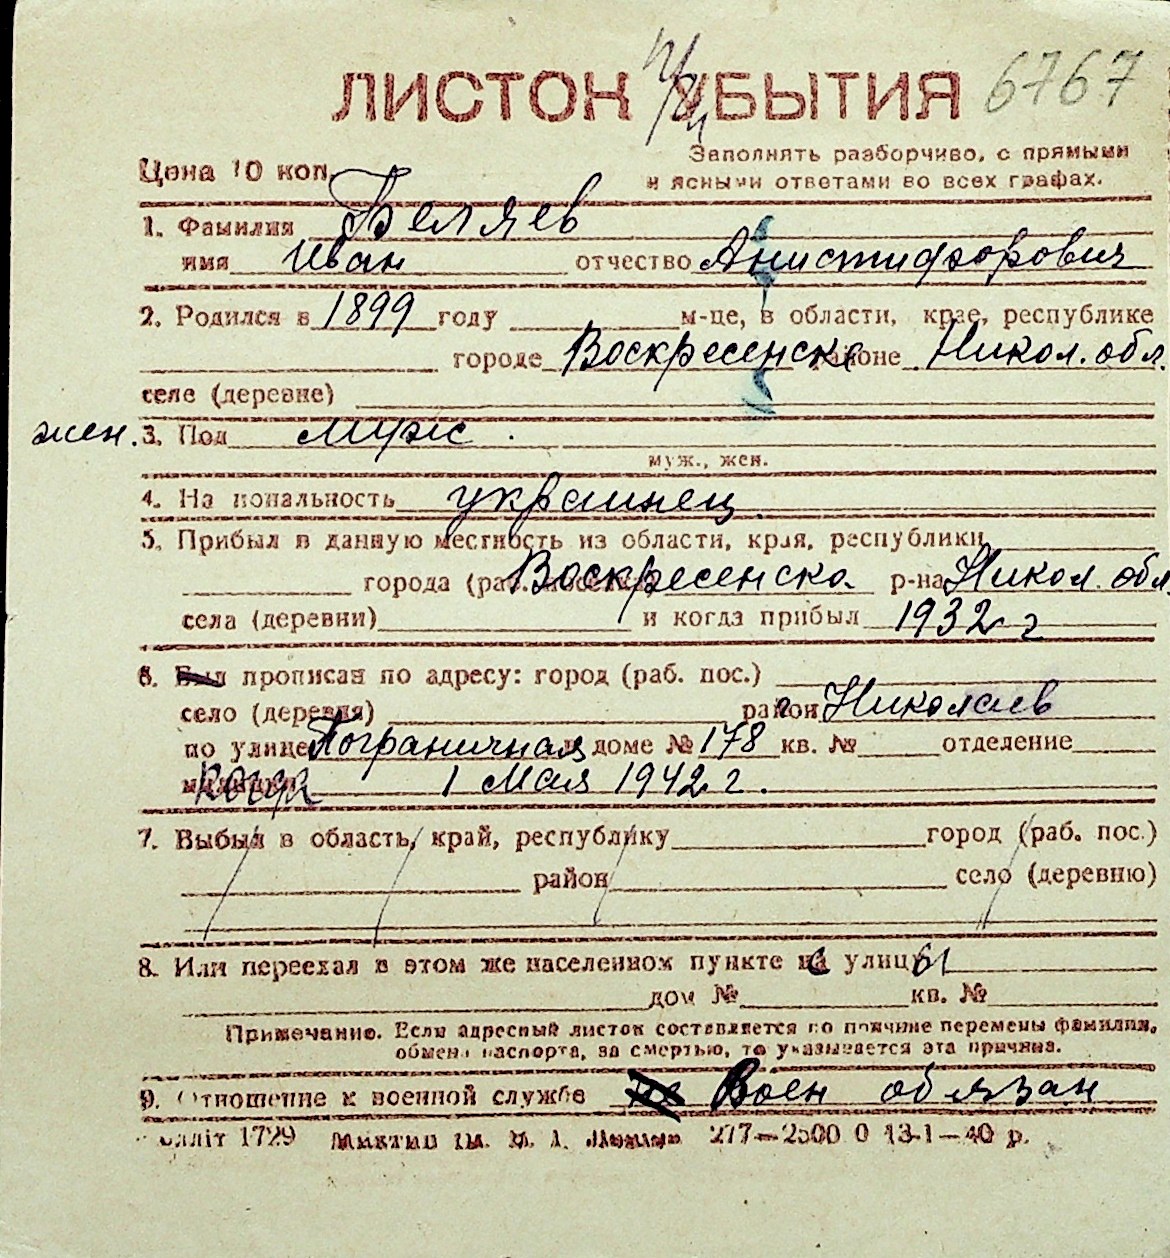 ЛИСТОК УБЫТИЯ 6767
Цена 10 коп.
Заполнять разборчиво, с прямыми
и ясными ответами во всех графах.
1. Фамилия Беляев
имя Иван отчество Анистифорович
2. Родился в 1899 году м-це, в области, крае, республике
городе Воскресенска районе Никол. обл.
селе (деревне)
жен. 3. Пол муж.
муж., жен.
4. Национальность украинец.
5. Прибыл в данную местность из области, края, республики
города (раб. поселка) Воскресенска р-на Никол. обл.
села (деревни) и когда прибыл 1932 г
6. Был прописан по адресу: город (раб. пос.)
село (деревня) район г. Николаев
по улице Пограничная доме № 178 кв. № отделение
милиции когда 1 Мая 1942 г.
7. Выбыл в область, край, республику город (раб. пос.)
район село (деревню)
8. Или переехал в этом же населенном пункте с улицы
дом № кв. №
Примечание. Если адресный листок составляется по причине перемены фамилии,
обмена паспорта, за смертью, то указывается эта причина.
9. Отношение к военной службе не Воен обязан
1729 277—2500 0 13-1—40 р.